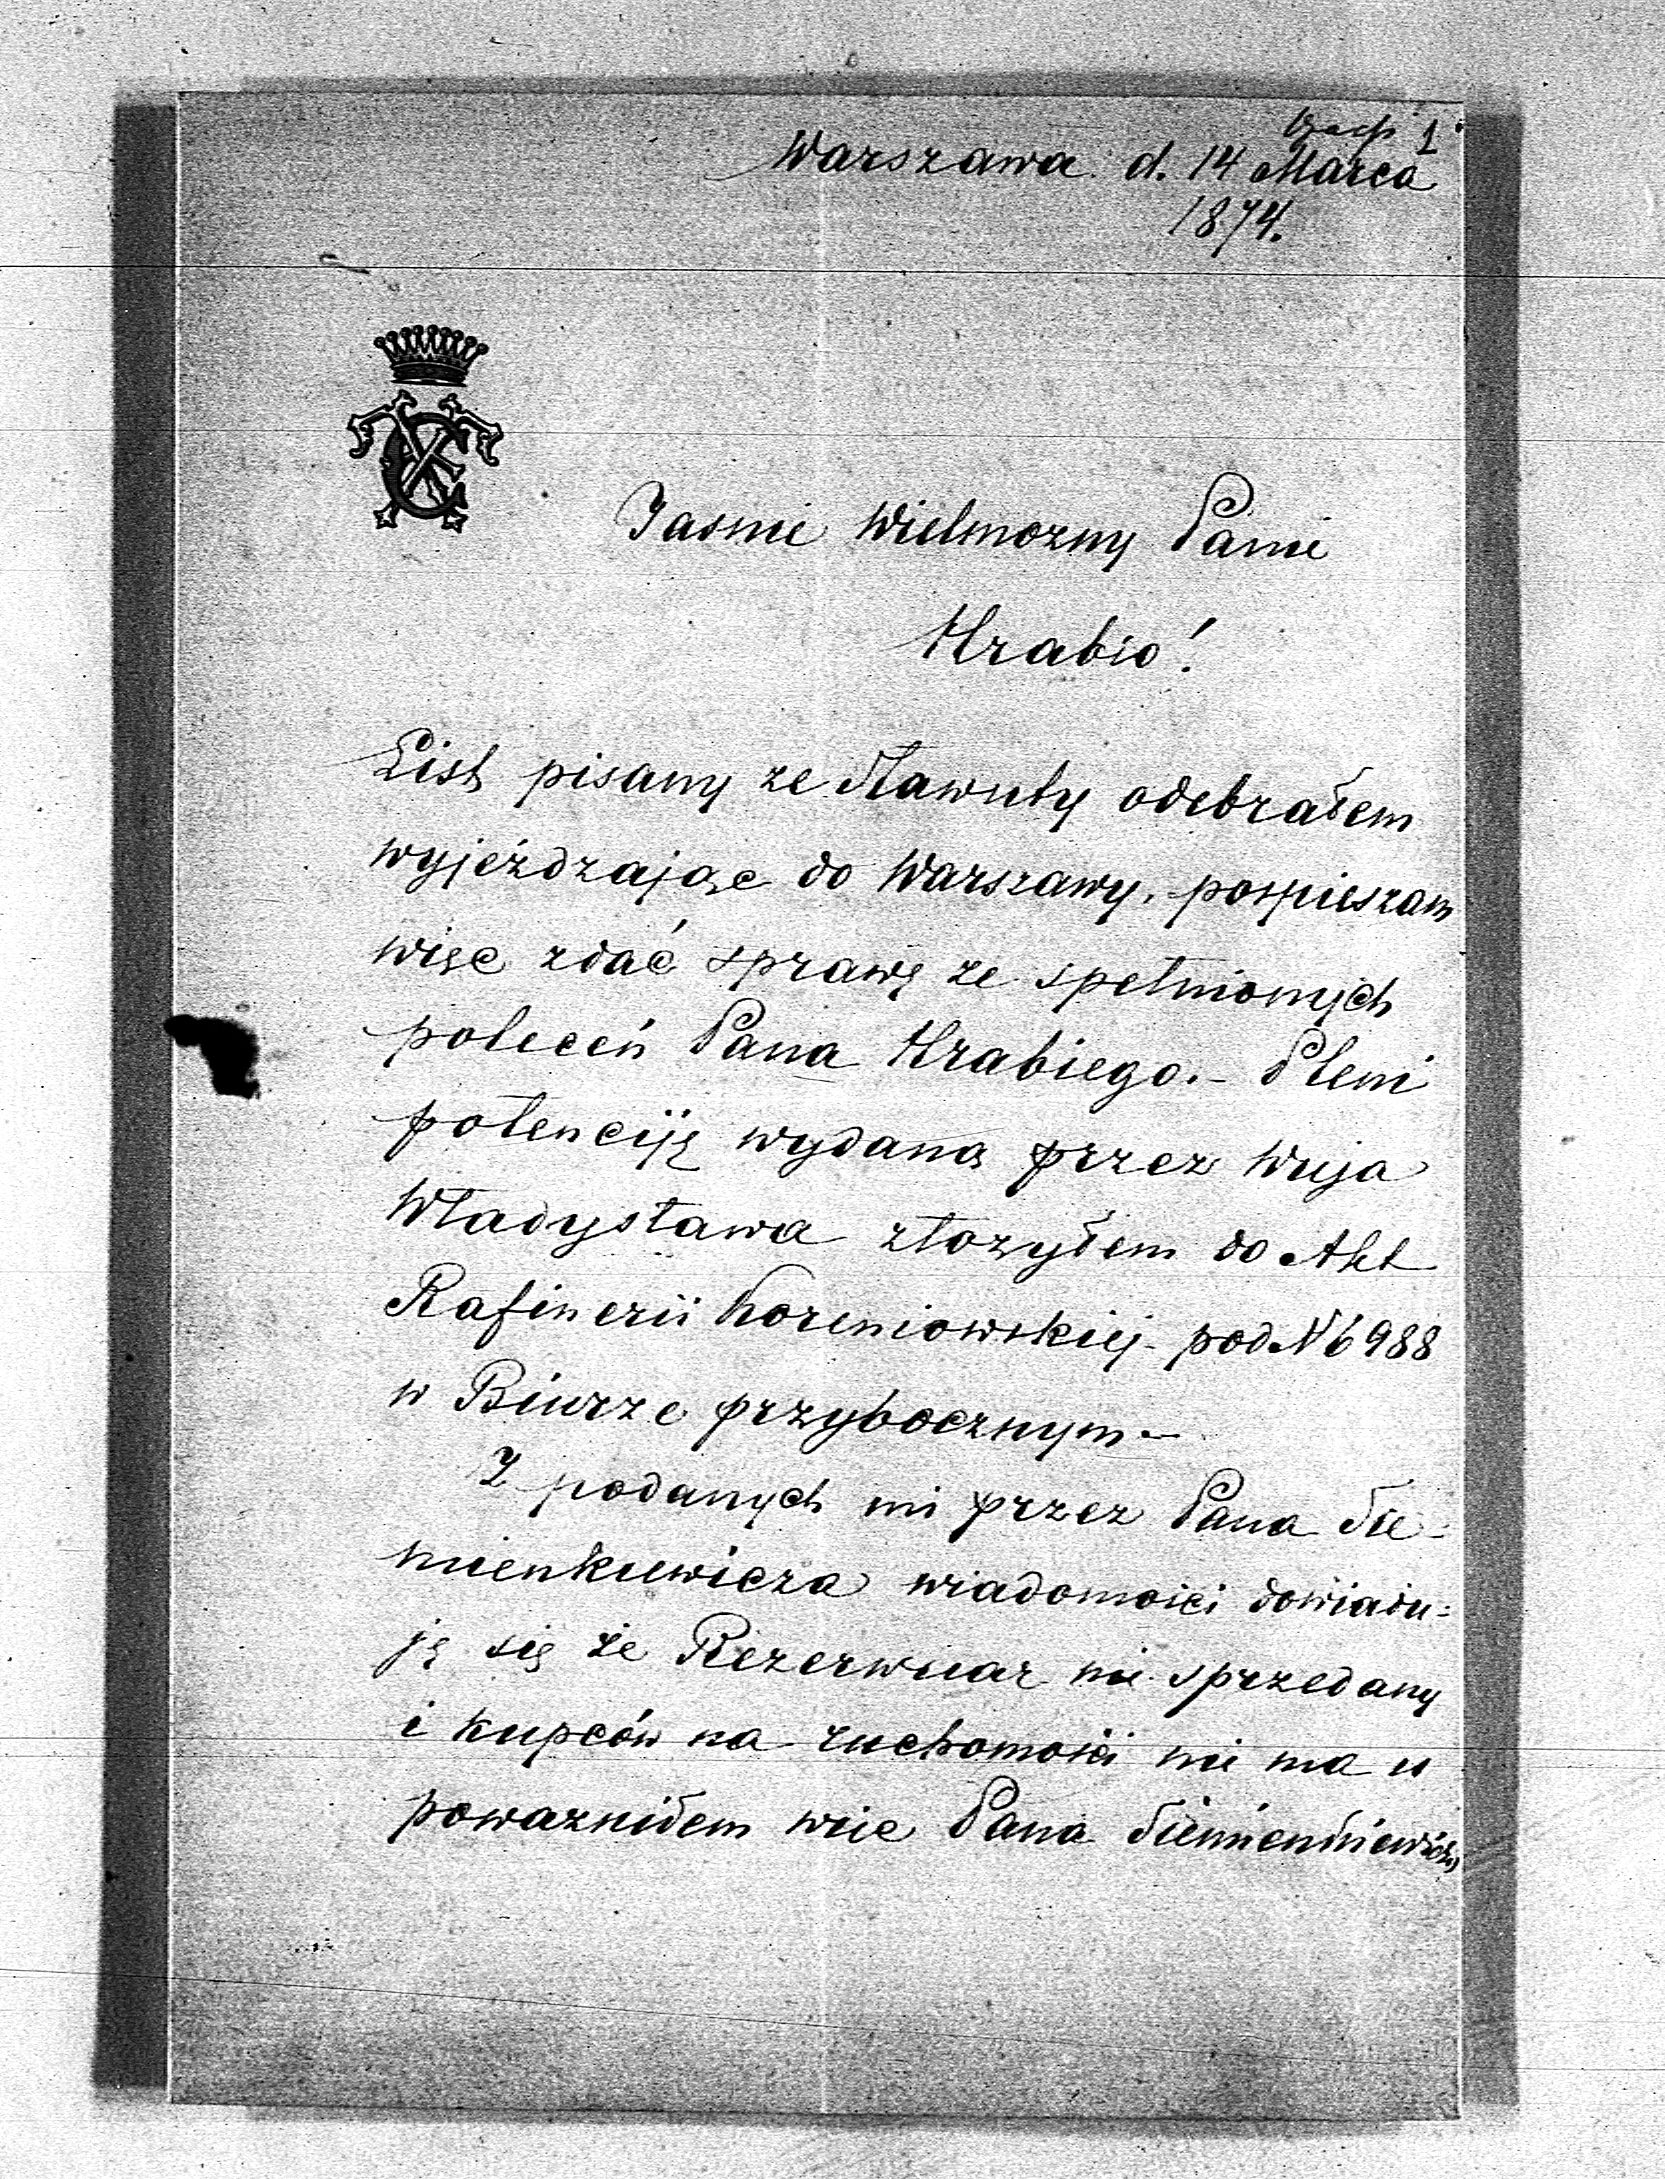 1
Warszawa d. 14 Marca
1874.
Jasnie Wielmozny Panie
Hrabio!
List pisany ze Sławuty odebrałem
wyjeżdzając do Warszawy. pospieszam
więc zdać sprawę ze spełnionych
poleceń Pana Hrabiego. - Pleni
potenciję wydaną przez Wuja
Władysława złozyłem do Akt
Rafinerii Koreniowskiej pod N 6988
w Biurze przybocznym -
Z podanych mi przez Pana Sie-
mienkiewicza wiadomości dowiadu-
ję się że Rezerwuar nie sprzedany
i kupców na ruchomości nie ma u
powazniłem więc Pana Siemienkiewicza